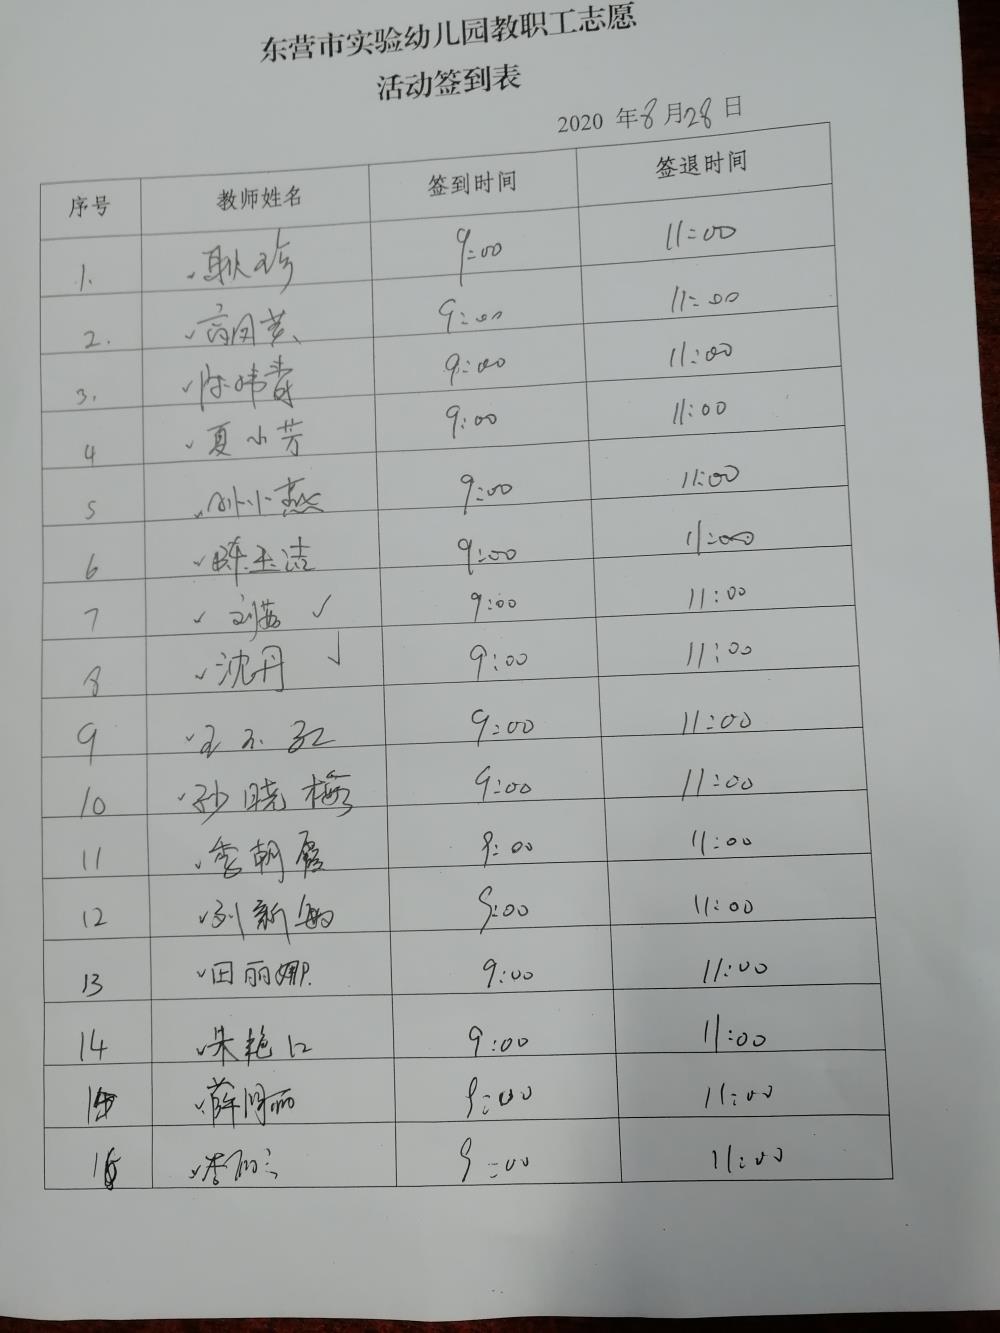 东营市实验幼儿园教职工志愿
活动签到表
2020 年8月28日
序号 教师姓名 签到时间 签退时间
1. 耿珍 9:00 11:00
2. 9:00 11:00
3. 9:00 11:00
4 夏小芳 9:00 11:00
5 孙小燕 9:00 11:00
6 陈玉洁 9:00 11:00
7 刘茜 9:00 11:00
8 沈丹 9:00 11:00
9 9:00 11:00
10 孙晓梅 9:00 11:00
11 李朝霞 9:00 11:00
12 刘新敏 9:00 11:00
13 田丽娜 9:00 11:00
14 朱艳 9:00 11:00
15 薛月丽 9:00 11:00
16 9:00 11:00